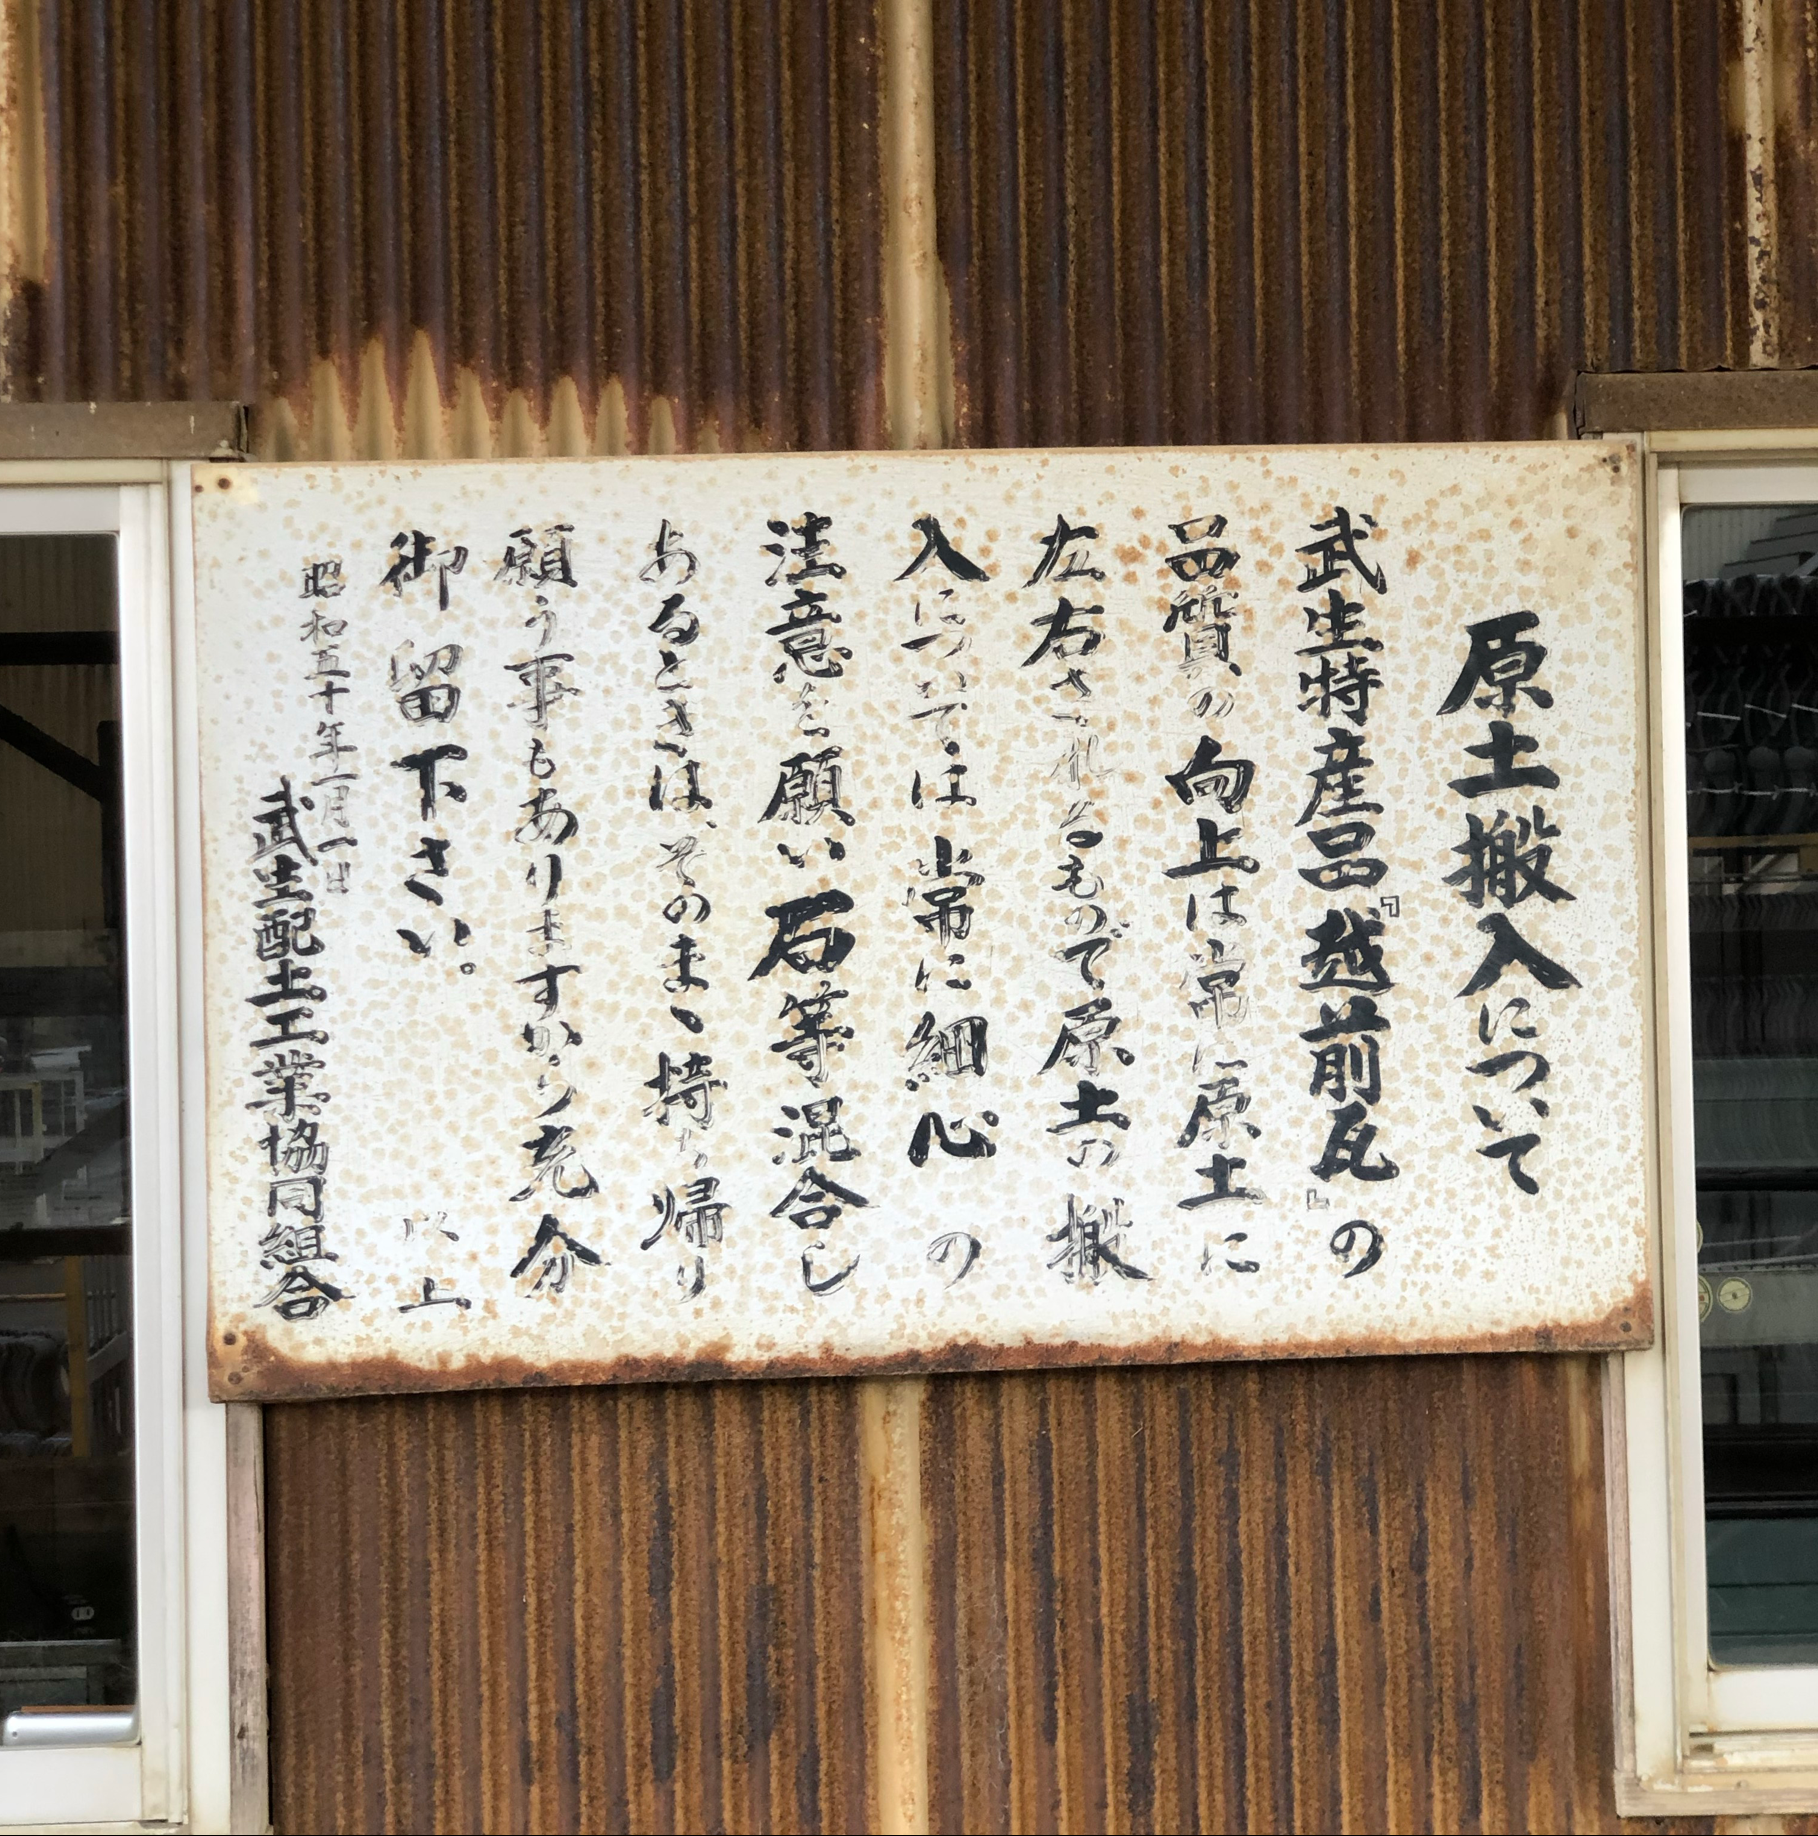 原土搬入について
武生特産品『越前瓦』の
品質の向上は常に原土に
左右されるもので原土の搬
入については常に細心の
注意を願い石等混合し
あるときは、そのまゝ持ち帰り
願う事もありますから充分
御留下さい。
以上
昭和五十年一月一日
武生配土工業協同組合